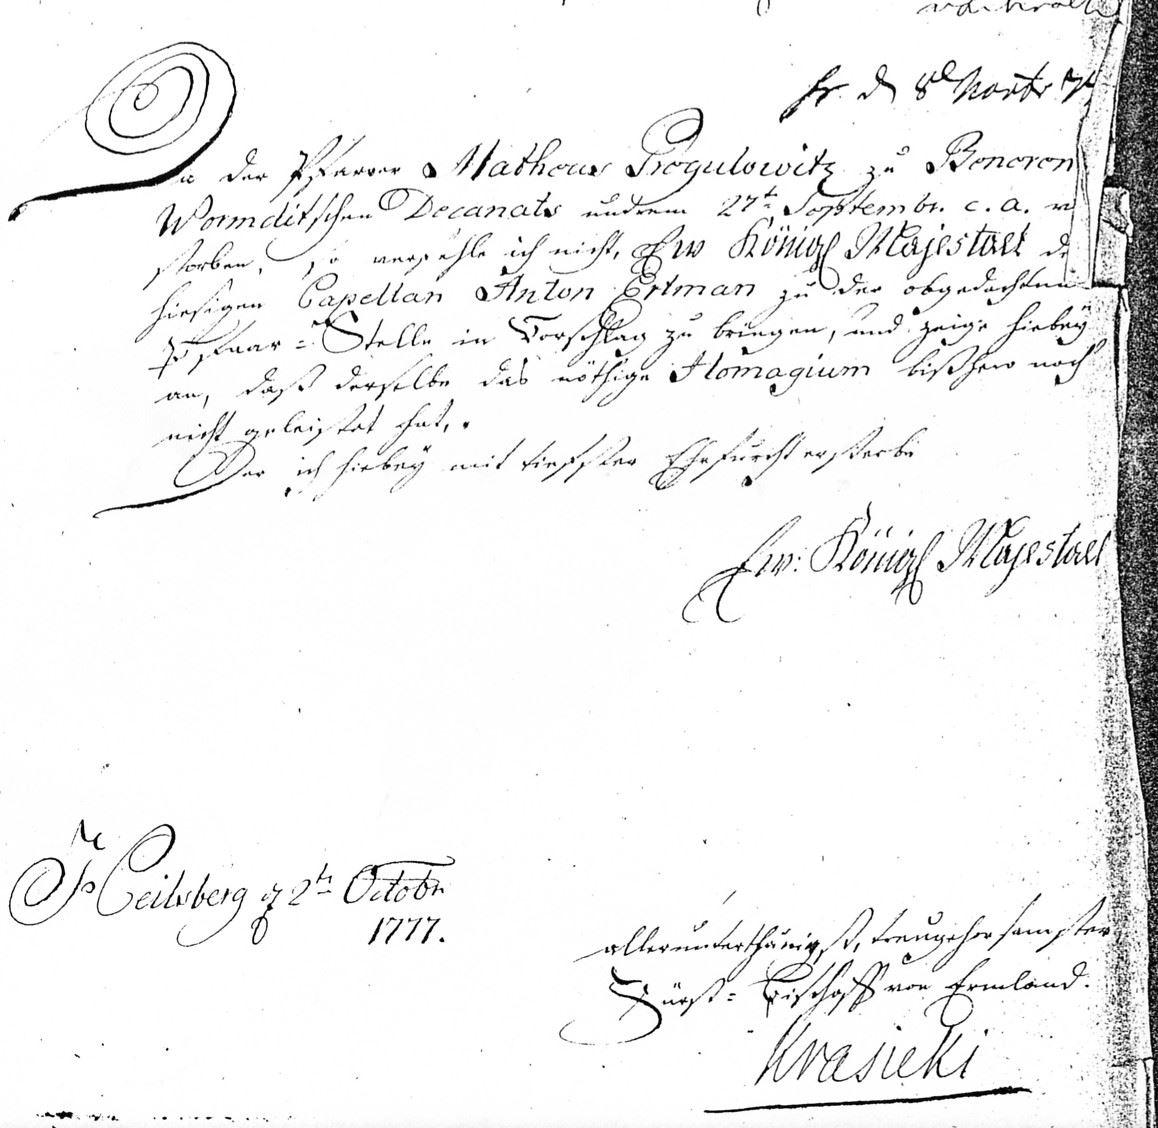 pr. d 8t Novbr 77
Da der Pfarrer Matheus Progulowitz zu Beneren
Wormditschen Decanats unterm 27t Septembr. c. a. ver
storben, so verfehle ich nicht, Ew Königl Majestaet de
hiesigen Capellan Anton Ertman zu der obgedachten
Pfaar-Stelle in Vorschlag zu bringen, und zeige hiebey
an, daß derselbe das nöthige Homagium bißhero noch
nicht geleistet hat.
Der ich hiebey mit tiefster Ehrfurcht ersterbe
Ew: Königl Majestaet
Heilsberg d 2ten Octobr
1777.
allerunterthänigst, treugehorsamster
Fürst-Bischoff von Ermland.
Krasicki